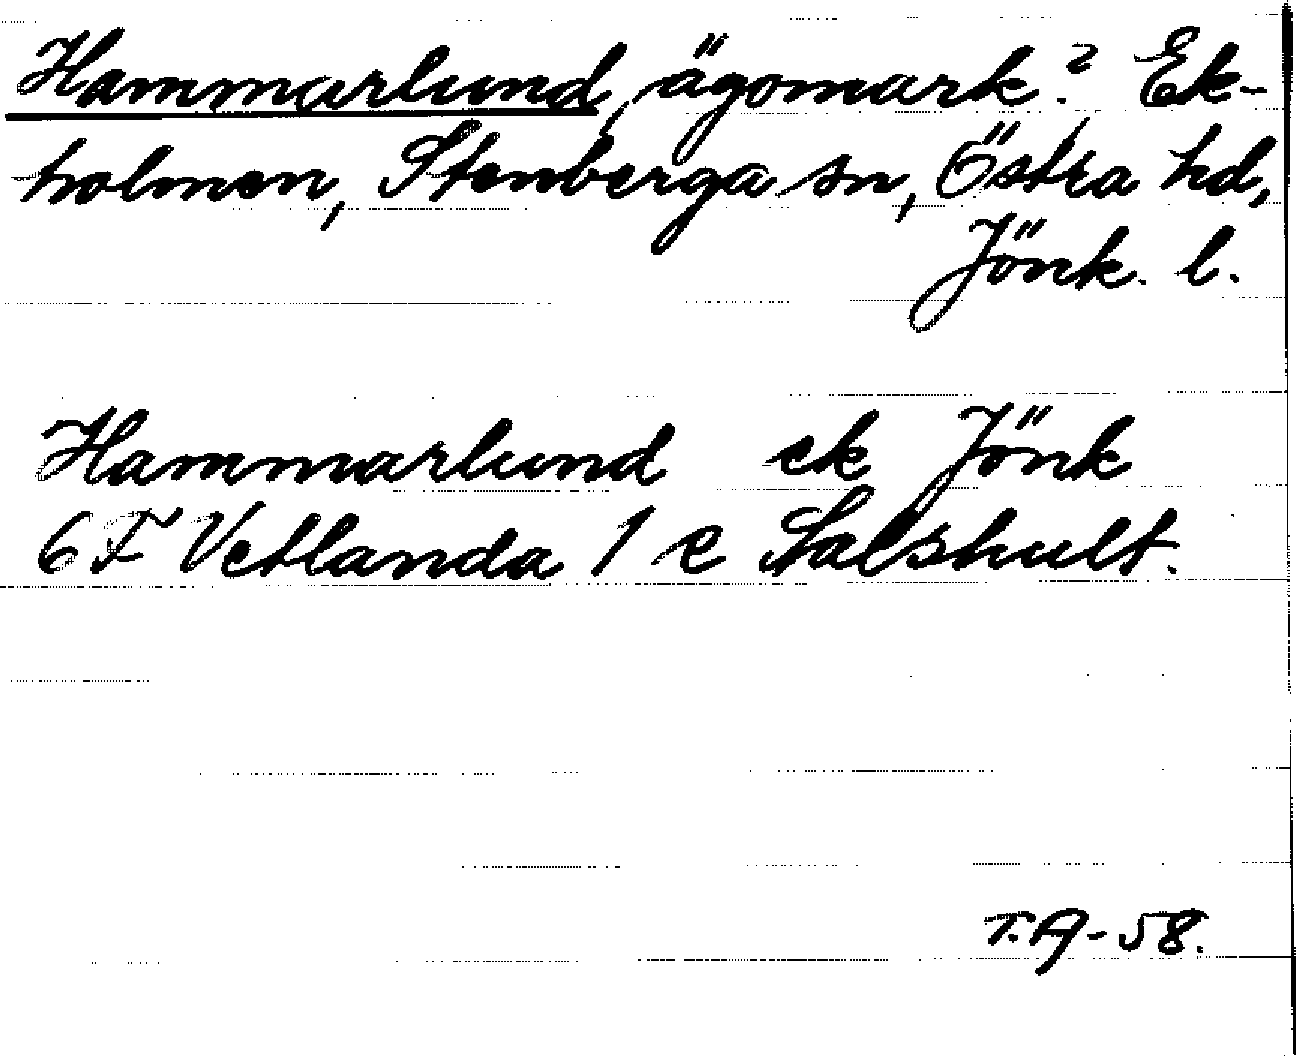 Hammarlund, ägomark? Ek-
holmen, Stenberga sn, Östra hd,
Jönk. l.
Hammarlund ek Jönk
6 F Vetlanda 1 e Salshult.
T.A-58.